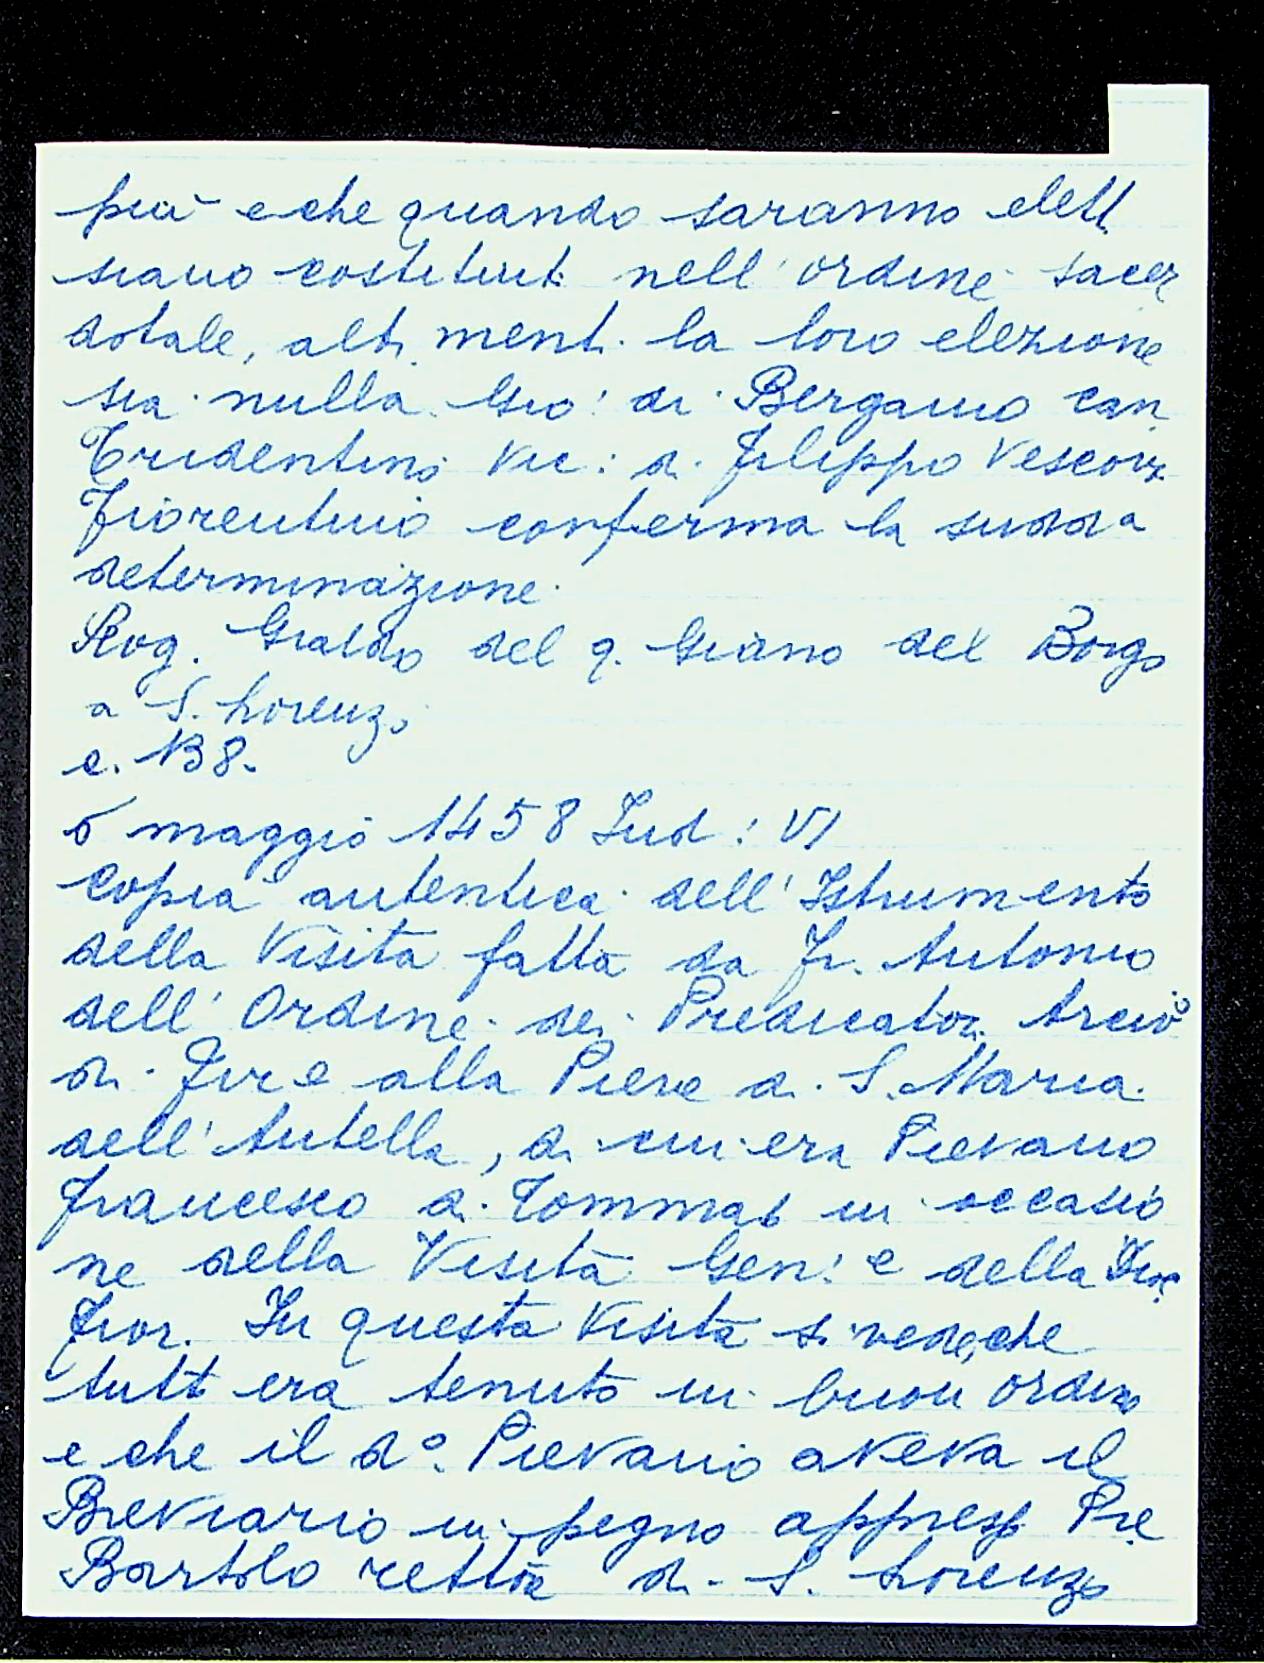 più e che quando saranno elett.
siano costituit. nell'ordine sacer
dotale, alt. ment. la loro elezione
sia nulla. Gio: di Bergamo can.
Tridentino Vic: di Filippo Vescovo
Fiorentino conferma la sudda
determinazione.
Rog. Giraldo del q. Giano del Borgo
a S. Lorenzo
c. 138.
6 maggio 1458 Ind: VI
Copia autentica dell'Istrumento
della Visita fatta da Fr. Antonio
dell'Ordine dei Predicatori Arcivo
di Fire alla Pieve di S. Maria
dell'Antella, di cui era Pievano
Francesco di Tommas in occasio
ne della Visita Gen: e della Dioc.
Fior. In questa Visita si vede, che
tutt era tenuto in buon ordine
e che il do. Pievano aveva il
Breviario in pegno appresso Pre
Bartolo rettore di S. Lorenzo